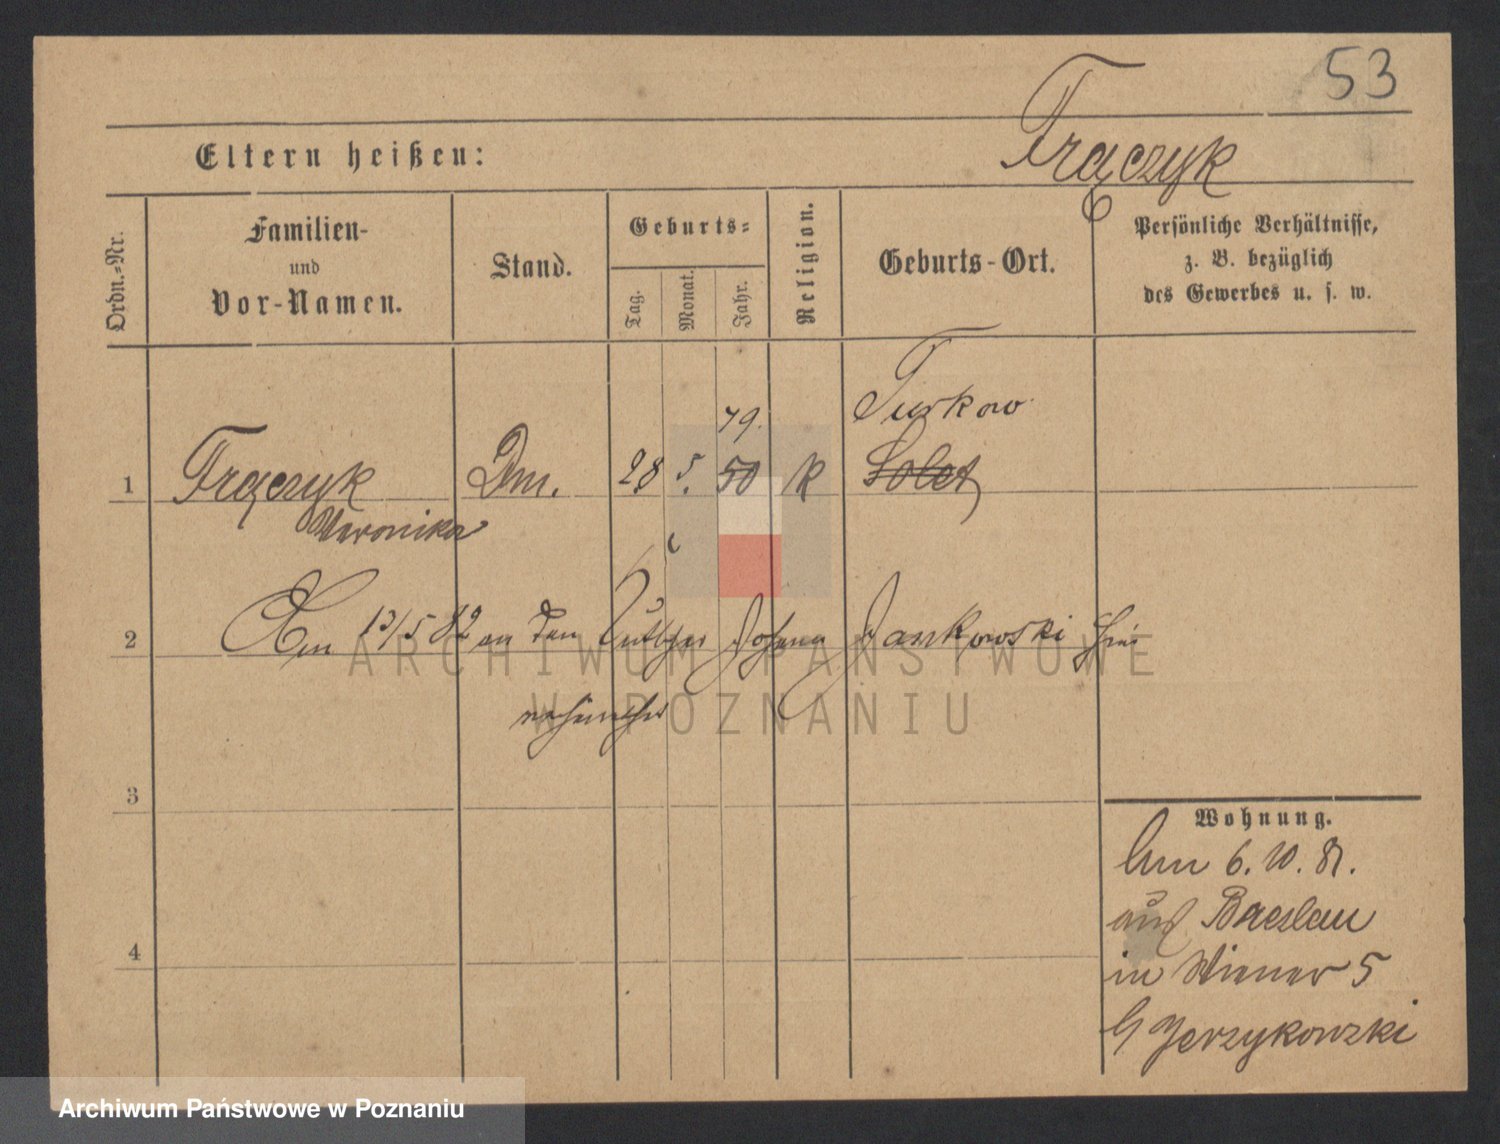 53
Eltern heißen:
Frączyk
Ordn.-Nr.
Familien-
und
Vor-Namen.
Stand.
Geburts-
Tag.
Monat.
Jahr.
Religion.
Geburts-Ort.
Persönliche Verhältnisse,
z. B. bezüglich
des Gewerbes u. s. w.
79.
Turkow
1 Frączyk Dm. 28 5. 50 K
Veronika
2 Am 13/5 82 an den Johann Jankowski
3
Wohnung.
Am 6. 10. 81.
aus Breslau
in Wiener 5
4
b/ Jerzykowski
ARCHIWUM PAŃSTWOWE
W POZNANIU
Archiwum Państwowe w Poznaniu